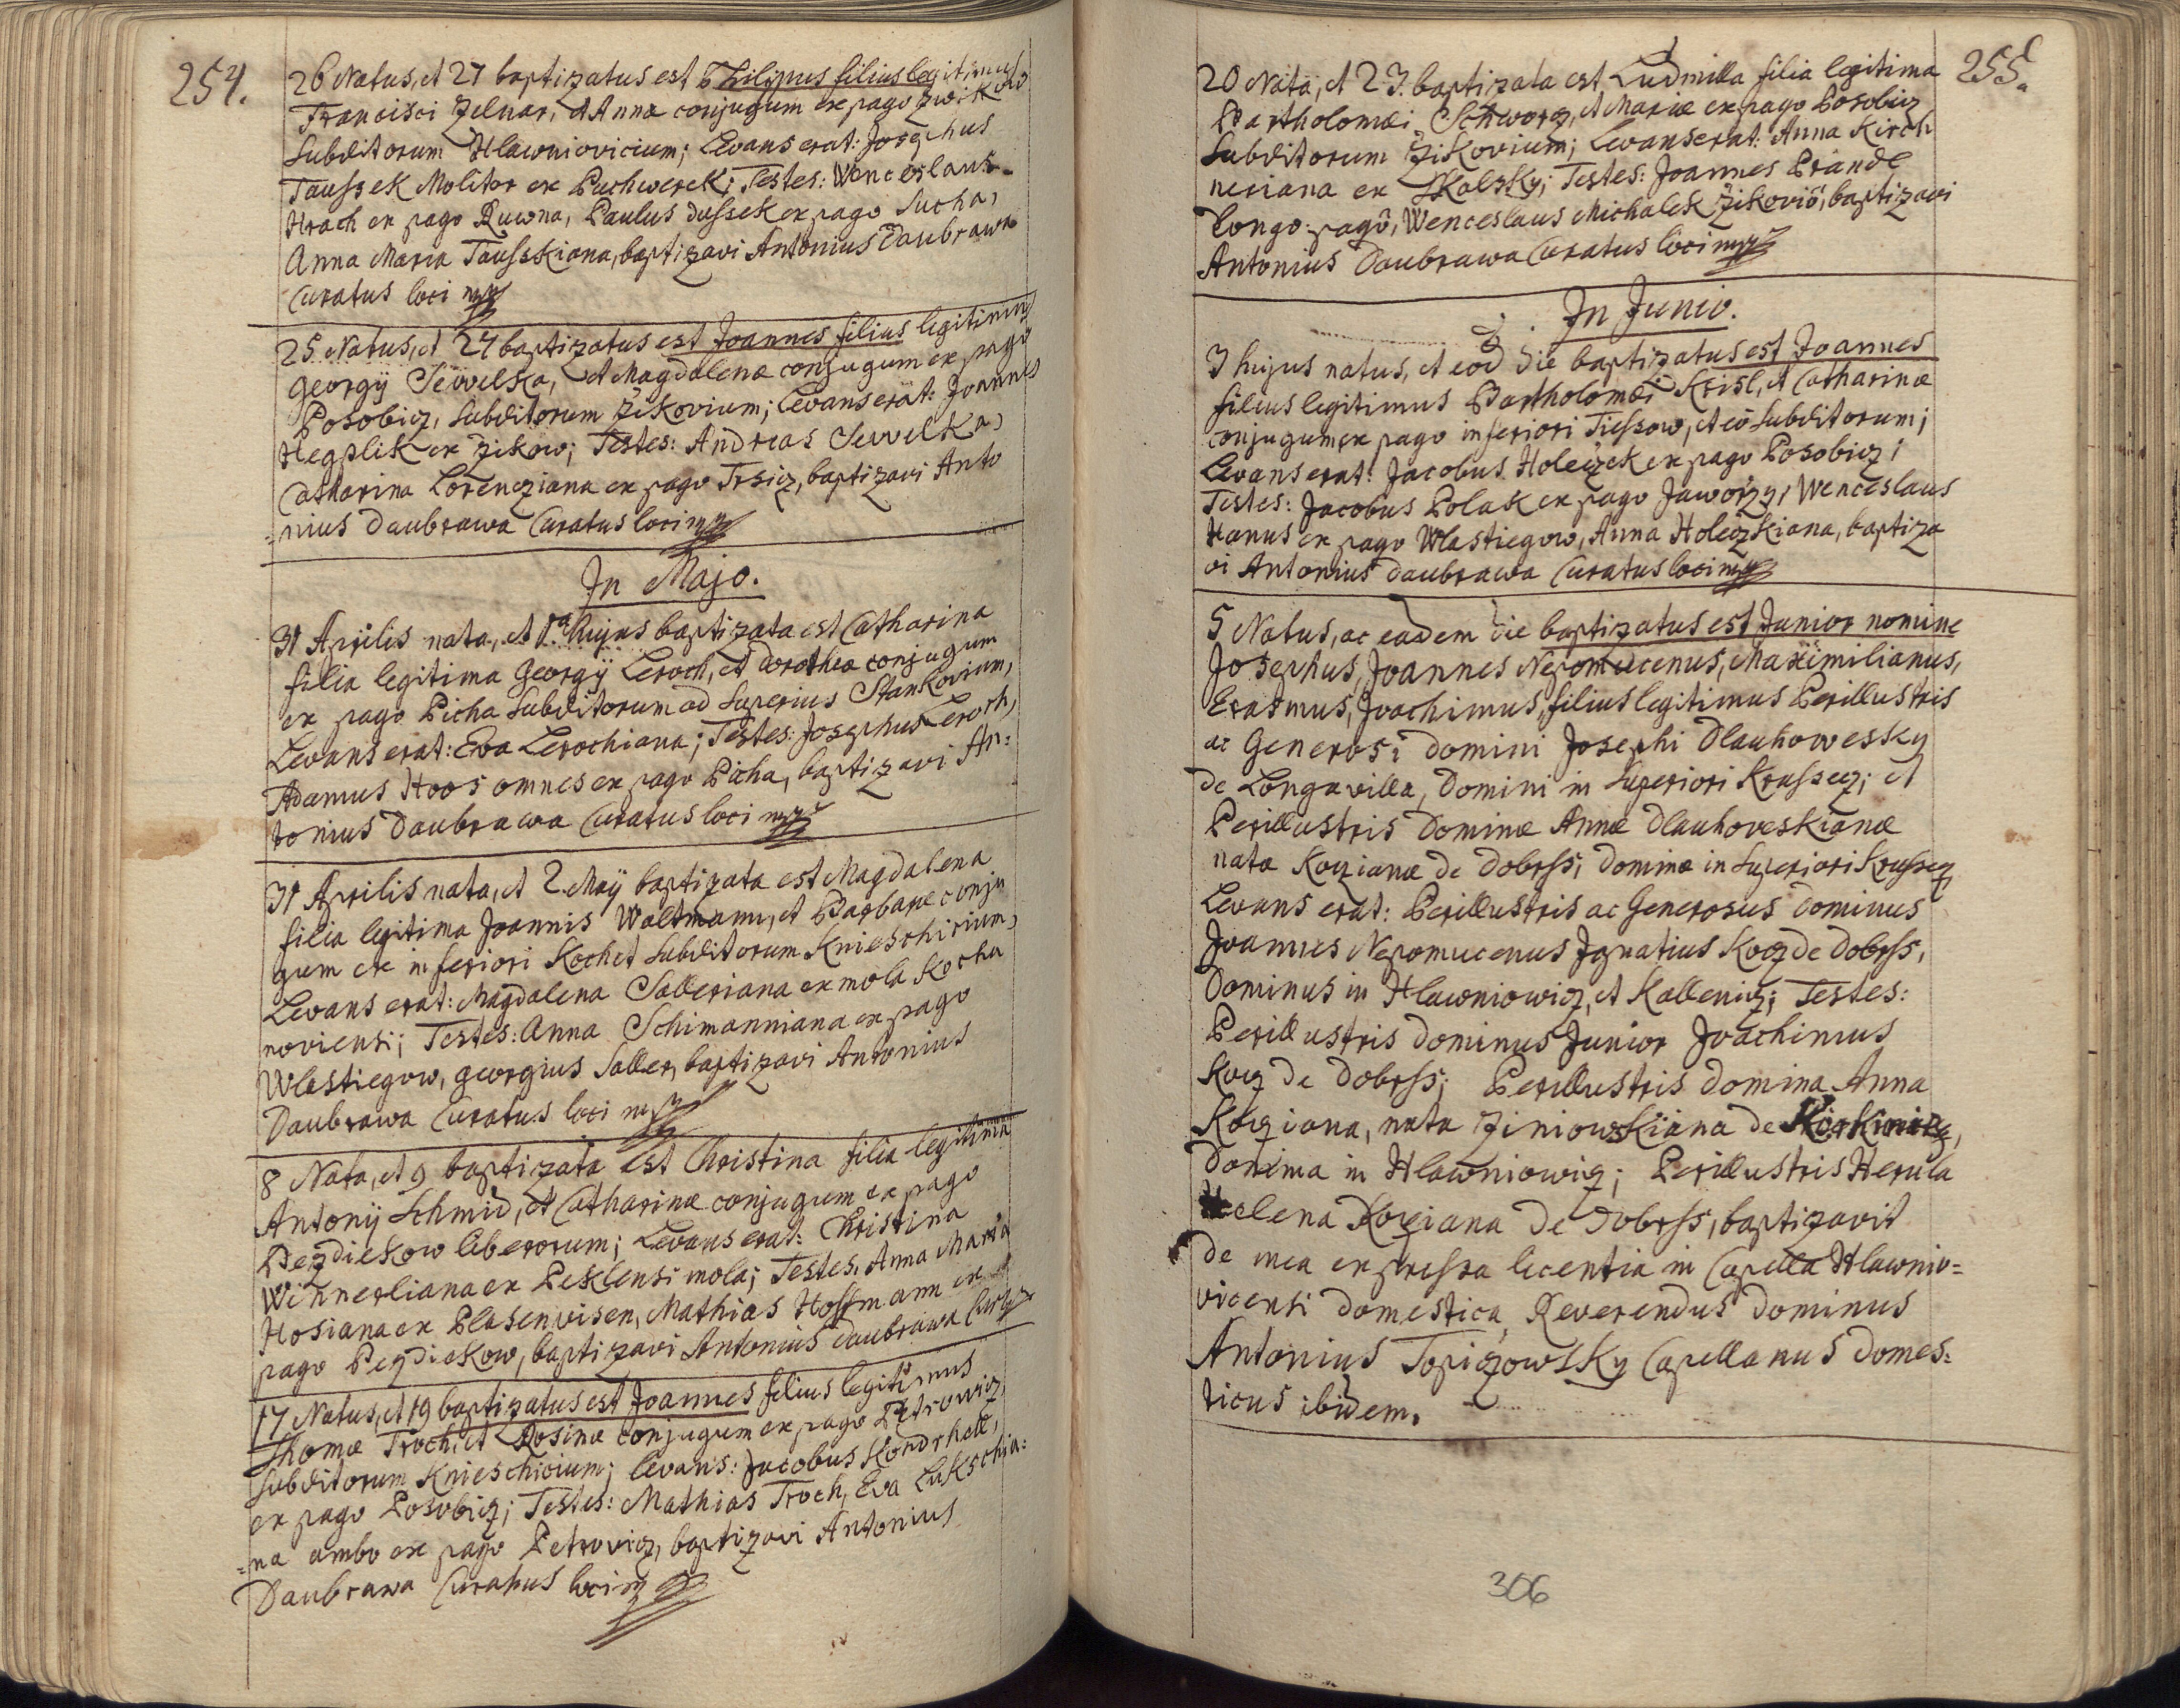 254.
26 Natus, et 27 baptizatus est Philipus filius legitimus
Francisci Zelnar, et Annæ conjugum ex pago
Subditorum Hlawniovicium; Levans erat: Josephus
Taussek Molitor ex Puchwerek; Testes: Wenceslaus
Hrach ex pago Ruwna, Paulus dussek ex pago Sucha,
Anna Maria Tausskiana, baptizavi Antonius Daubrawa
Curatus loci mpp
25. Natus, et 27 baptizatus est Joannes filius legitimus
Georgÿ Sewelka, et Magdalenæ conjugum ex pago
Posobicz, Subditorum Žikovium; Levans erat: Joannes
Hegplik ex Zikow; Testes: Andreas Sewelka,
Catharina Lorencziana ex pago Trsicz, baptizavi Anto
=nius Daubrawa Curatus loci mpp
In Majo.
31 Aprilis nata, et 1.a hujus baptizata est Catharina
filia legitima Georgÿ Leroch, et Dorotheæ conjugum
ex pago Picha Subditorum ad Superius Stankovium,
Levans erat: Eva Lerochiana; Testes: Josephus Leroch,
Adamus Hoos omnes ex pago Picha, baptizavi An:
tonius Daubrawa Curatus loci mpp
31 Aprilis nata, et 2. Maÿ baptizata est Magdalena
filia legitima Joannis Waltmann, et Barbaræ conju
gum ex inferiori Kochet Subditorum Knieschicium,
Levans erat: Magdalena Salleriana ex mola Kocha
noviensi; Testes: Anna Schimanniana ex pago
Wlastiegow, georgius Saller, baptizavi Antonius
Daubrawa Curatus loci mpp
8 Nata, et 9 baptizata est Christina filia legitima
Antonij Schmid, et Catharinæ conjugum ex pago
Pezdiekow liberorum; Levans erat: Christina
Winnerliana ex Peklensi mola; Testes. Anna Maria
Hosiana ex Plasenwisen, Mathias Hoffmann ex
pago Pezdiekow, baptizavi Antonius Daubrawa
17 Natus, et 19 baptizatus est Joannes filius legitimus
Thomæ Troch, et Rosinæ conjugum ex pago Petrowicz
Subditorum Knieschicium; levans: Jacobus Kondrhell,
ex pago Posobicz; Testes: Mathias Troch, Eva Lukschia:
=na ambo ex pago Petrovicz, baptizavi Antonius
Daubrawa Curatus loci mpp
255.
20 Nata, et 23. baptizata est Ludmilla filia legitima
Bartholomæi Schworz, et Mariæ ex pago Posobicz
Subditorum Žikovium; Levans erat: Anna Kirch
neriana ex Skalsky; Testes: Joannes Brandl
longo pago, Wenceslaus Michalek Žikovio, baptizavi
Antonius Daubrawa Curatus loci mpp
In Junio.
3 hujus natus, et eod die baptizatus est Joannes
filius legitimus Bartholomæi Krisl, et Catharinæ
conjugum ex pago inferiori Tiessow, et eo Subditorum;
Levans erat: Jacobus Holeczek ex pago Posobicz;
Testes: Jacobus Polak ex pago Jaworzy, Wenceslaus
Hanus ex pago Wlastiegow, Anna Holeczkiana, baptiza
vi Antonius Daubrawa Curatus loci mpp
5 Natus, ac eadem die baptizatus est Junior nomine
Josephus, Joannes Nepomucenus, Maximilianus,
Erasmus, Joachimus, filius legitimus Perillustris
ac Generosi Domini Josephi Dlauhowesky
de Longavilla, Domini in Superiori Krussecz; et
Perillustris Dominæ Annæ Dlauhoveskianæ
natæ Koczianæ de Dobrss, Dominæ in Superiori Krussecz
Levans erat: Perillustris ac Generosus Dominus
Joannes Nepomucenus Ignatius Kocz de Dobrss,
Dominus in Hlawniowicz, et Kallenicz; Testes:
Perillustris Dominus Junior Joachimus
Kocz de Dobrss; Perillustris Domina Anna
Kocziana, nata Ziniowskiana de
Domina in Hlawniowicz; Perillustris Herula
Helena Kocziana de Dobrss, baptizavit
de mea expressa licentia in Capella Hlawnio=
vicensi domestica Reverendus Dominus
Antonius Topiczowsky Capellanus Domes:
ticus ibidem.
306